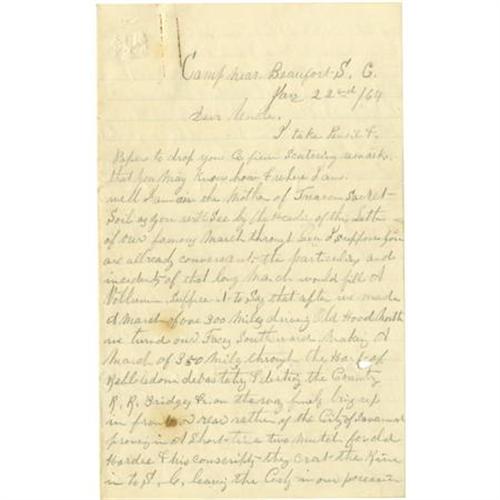 Camp near Beaufort S. C.
Jan 22nd /64
Dear Uncle,
I take Pencil &
Paper to drop you a few Scatering remarks
that you May Know how & where I am
well I am in the Mother of Treason Sacret
Soil as you will See by the of the letter
of our famous March through Geo I suppose you
are allready conversant the particulars and
incidents of that long March would fill A
Vollumn Suffice it to Say that after we made
A March of over 300 Miles driving Old Hood North
we turned our Faces South ward Making A
March of 350 Miles through the Hart of
the Country
R. R. Bridges &c on the way finely bring up
in front or rear rather of the City of Savannah
proveing in A Short time two Mutch for old
Hardee & his conscripts they crost the River
in to S. C. leaving the City in our